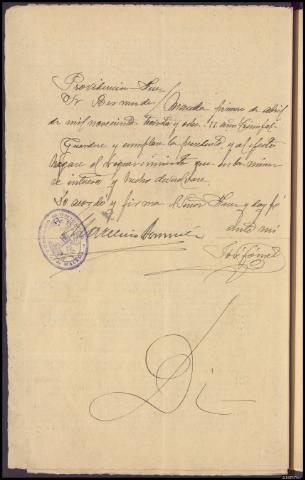 Providencia Juez
Sr Bermudez Aranda primero de abril
de mil novecientos treinta y ocho. II año triunfal
Guardese y cumplase la precedente y al efecto
hagase el requerimiento que en la misma
se interesa y hecho devuelvase.
Lo acordó y firma el Señor Juez y doy fé
ante mi
Di